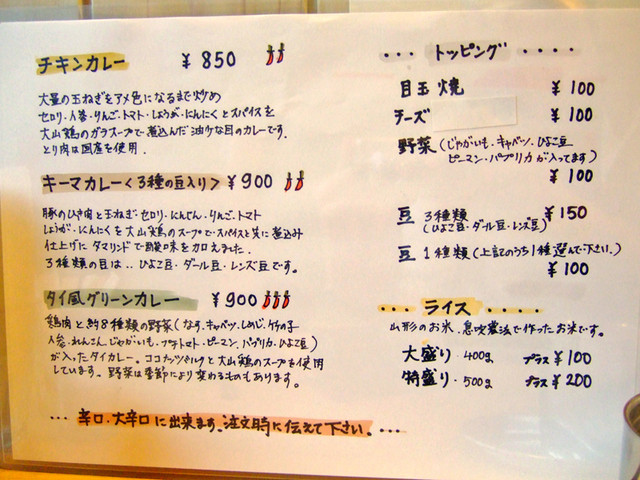 チキンカレー ¥850
大量の玉ねぎをアメ色になるまで炒め
セロリ・人参・りんご・トマト・しょうが・にんにくとスパイスを
大山鶏のガラスープで煮込んだ油控な目のカレーです。
とり肉は国産を使用.
キーマカレー<3種の豆入り> ¥900
豚のひき肉と玉ねぎ・セロリ・にんじん・りんご・トマト
しょうが・にんにくを大山鶏のスープで・スパイスと共に煮込み
仕上げにタマリンドで酸味を加えました.
3種類の豆は・・ひよこ豆・ダール豆・レンズ豆です。
タイ風グリーンカレー ¥900
鶏肉と約8種類の野菜(なす・キャベツ・しめじ・竹の子
人参・れんこん・じゃがいも・プチトマト・ピーマン・パプリカ・ひよこ豆)
が入ったタイカレー。ココナッツミルクと大山鶏のスープを使用
しています。野菜は季節により変わるものもあります。
・・・辛口・大辛口に出来ます、注文時に伝えて下さい。・・・
・・・トッピング・・・・
目玉焼 ¥100
チーズ ¥100
野菜(じゃがいも・キャベツ・ひよこ豆
ピーマン・パプリカが入ってます)
¥100
豆 3種類 ¥150
(ひよこ豆・ダール豆・レンズ豆)
豆 1種類(上記のうち1種選んで下さい.)
¥100
・・・・ライス・・・・
山形のお米、息吹農法で作ったお米です。
大盛り・400g プラス¥100
特盛り・500g プラス¥200